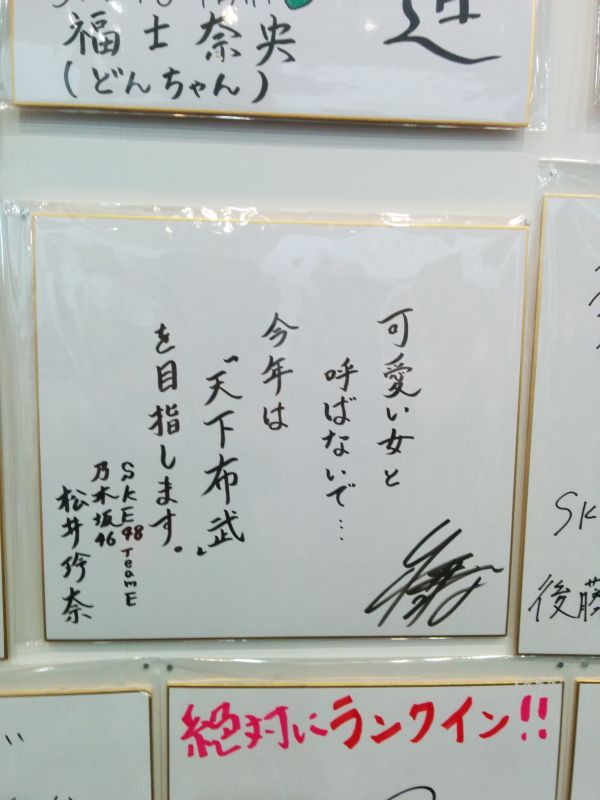 福士奈央
(どんちゃん)
可愛い女と
呼ばないで…
今年は
"天下布武"
を目指します。
SKE48 TeamE
乃木坂46
松井玲奈
SK
後藤
絶対にランクイン!!